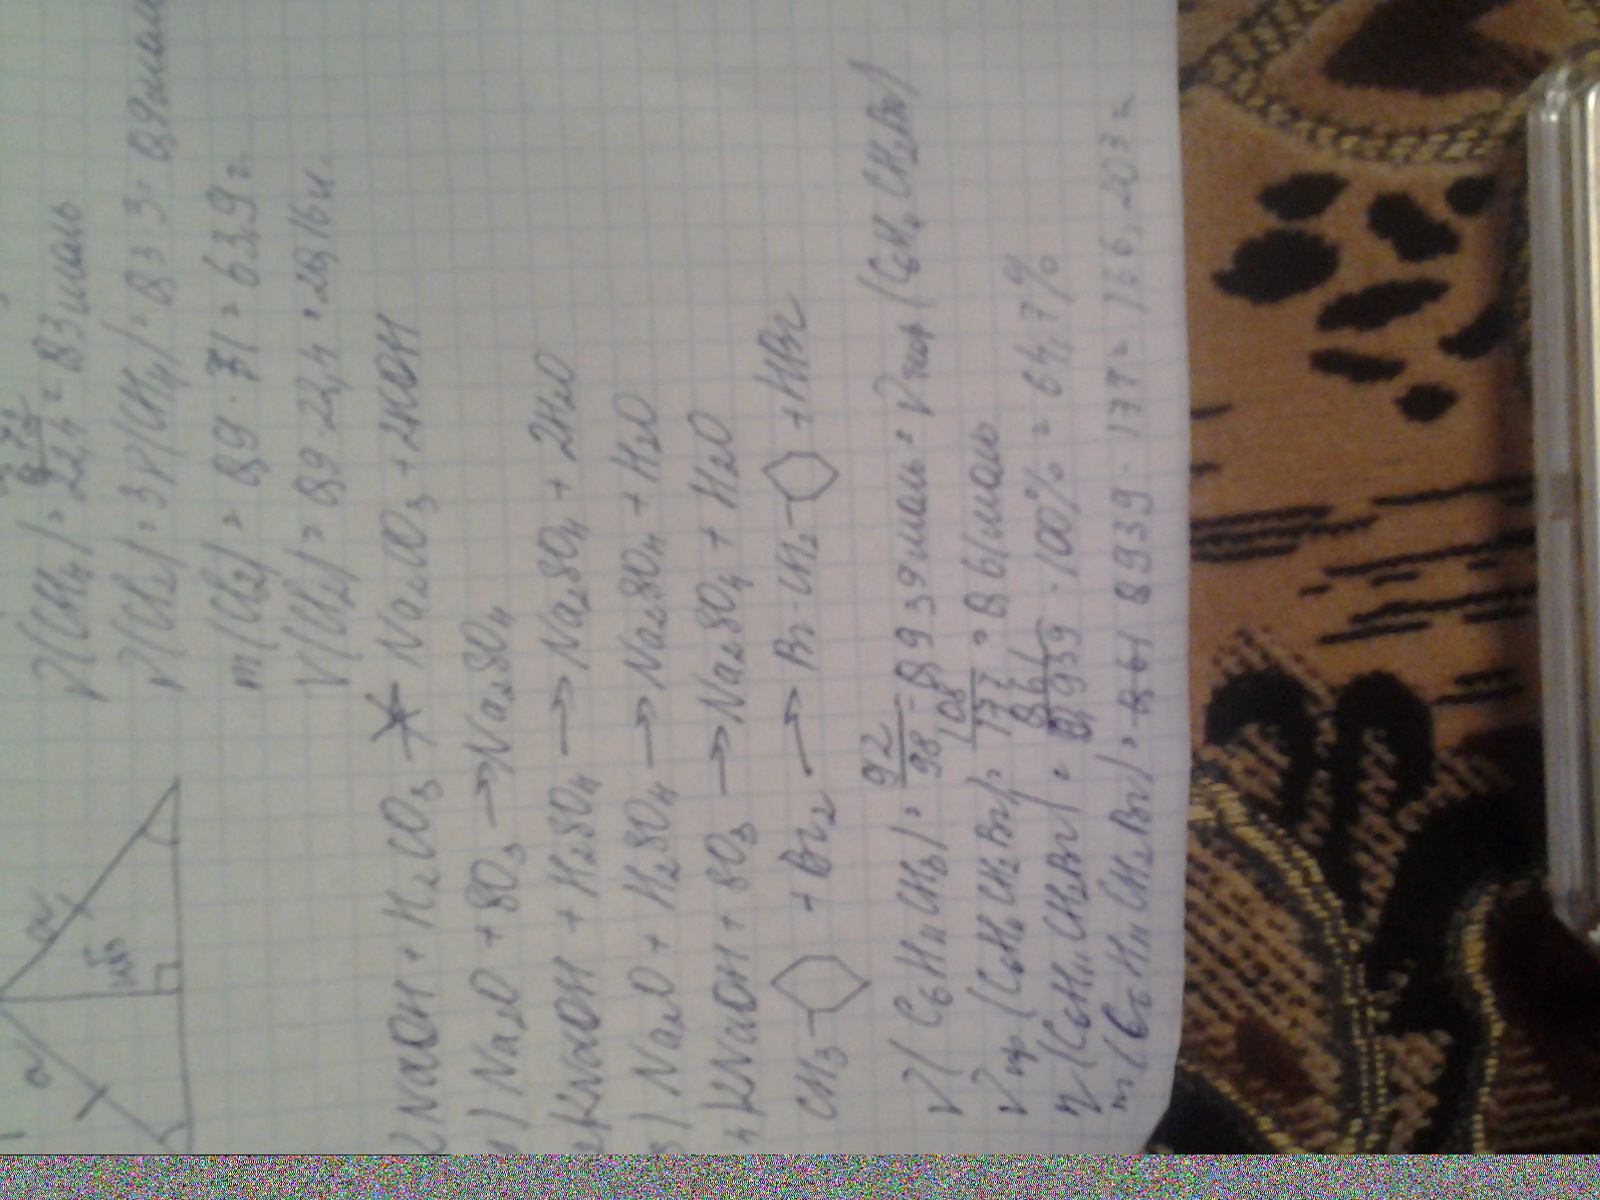 ν(CH₄) = 22,4 = 0,3 моль
ν(Cl₂) = 3ν(CH₄) = 0,3·3 = 0,9 моль
m(Cl₂) = 0,9·71 = 63,9 г
V(Cl₂) = 0,9·22,4 = 20,16 л.
a
a
2NaOH + H₂CO₃ → Na₂CO₃ + 2HOH
1) Na₂O + SO₃ → Na₂SO₄
2) 2NaOH + H₂SO₄ → Na₂SO₄ + 2H₂O
3) Na₂O + H₂SO₄ → Na₂SO₄ + H₂O
4) 2NaOH + SO₃ → Na₂SO₄ + H₂O
CH₃- + Br₂ → Br-CH₂- + HBr
ν(C₆H₁₁CH₃) = 92/98 = 0,939 моль = ν теор (C₆H₁₁CH₂Br)
ν пр (C₆H₁₁CH₂Br) = 108/177 = 0,61 моль
η(C₆H₁₁CH₂Br) = 0,61/0,939 · 100% = 64,7%
m(C₆H₁₁CH₂Br) = 0,939 · 177 = 166,203 г